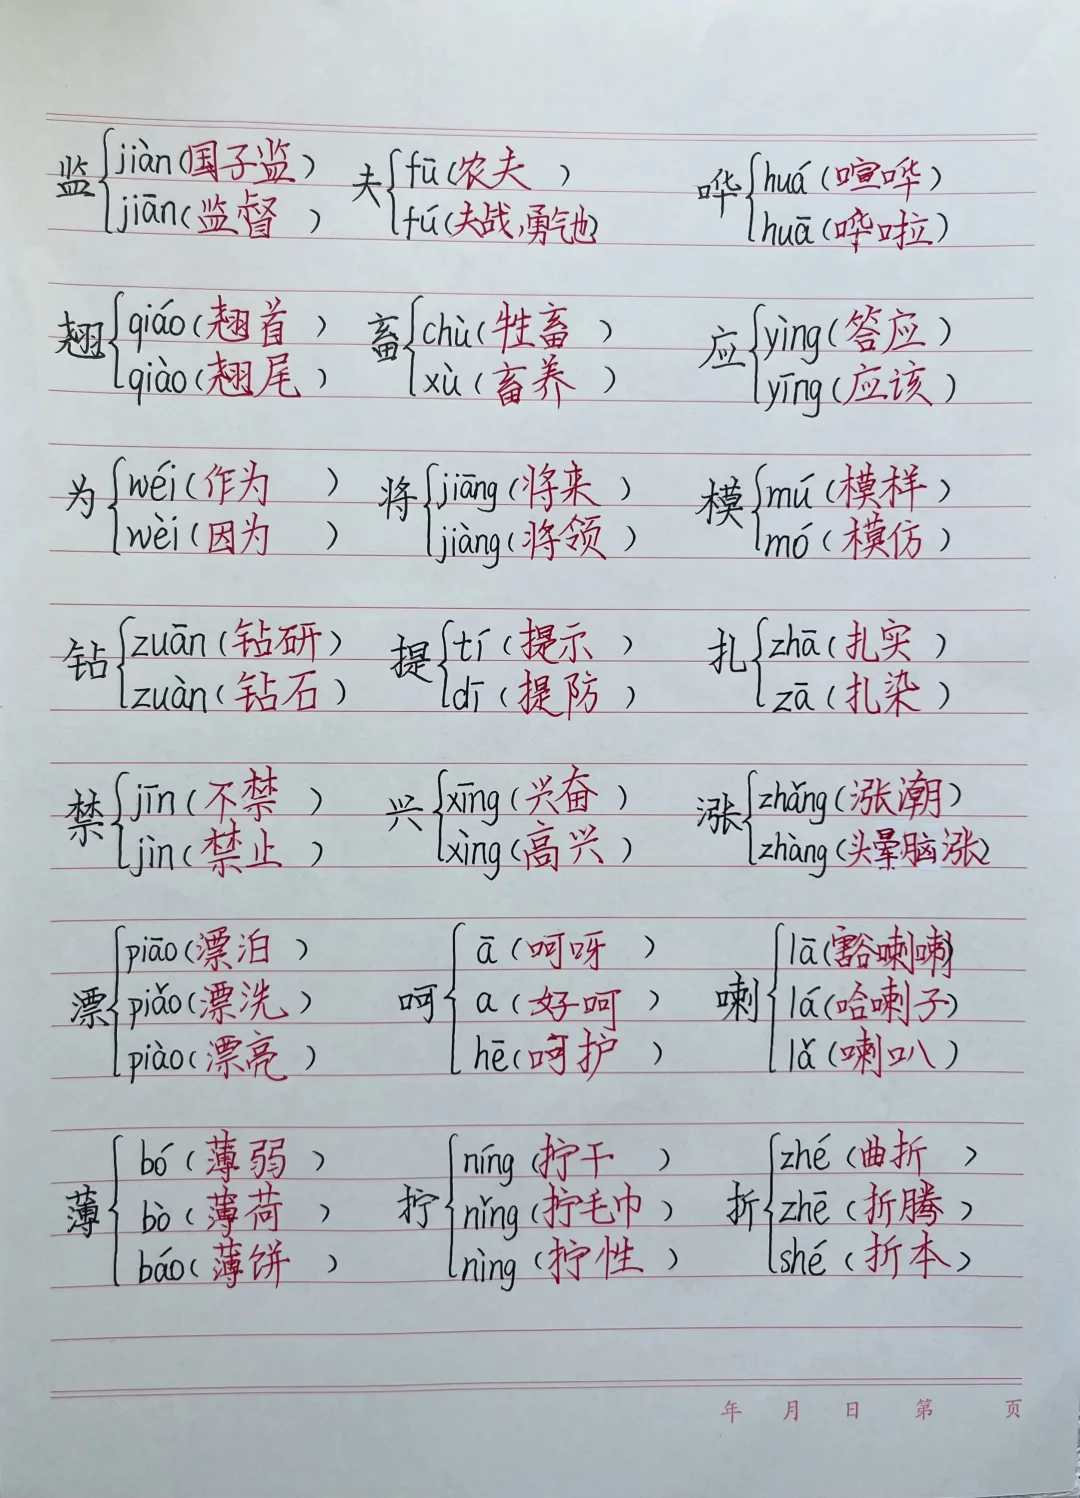 监 jiàn(国子监) 夫 fū(农夫) 哗 huá(喧哗)
jiān(监督) fú(夫战,勇气也) huā(哗啦)
翘 qiáo(翘首) 畜 chù(牲畜) 应 yìng(答应)
qiào(翘尾) xù(畜养) yīng(应该)
为 wéi(作为) 将 jiāng(将来) 模 mú(模样)
wèi(因为) jiàng(将领) mó(模仿)
钻 zuān(钻研) 提 tí(提示) 扎 zhā(扎实)
zuàn(钻石) dī(提防) zā(扎染)
禁 jīn(不禁) 兴 xīng(兴奋) 涨 zhǎng(涨潮)
jìn(禁止) xìng(高兴) zhàng(头晕脑涨)
漂 piāo(漂泊) 呵 ā(呵呀) 喇 lā(豁喇喇)
piǎo(漂洗) a(好呵) lá(哈喇子)
piào(漂亮) hē(呵护) lǎ(喇叭)
薄 bó(薄弱) 拧 níng(拧干) 折 zhé(曲折)
bò(薄荷) nǐng(拧毛巾) zhē(折腾)
báo(薄饼) nìng(拧性) shé(折本)
年 月 日 第 页